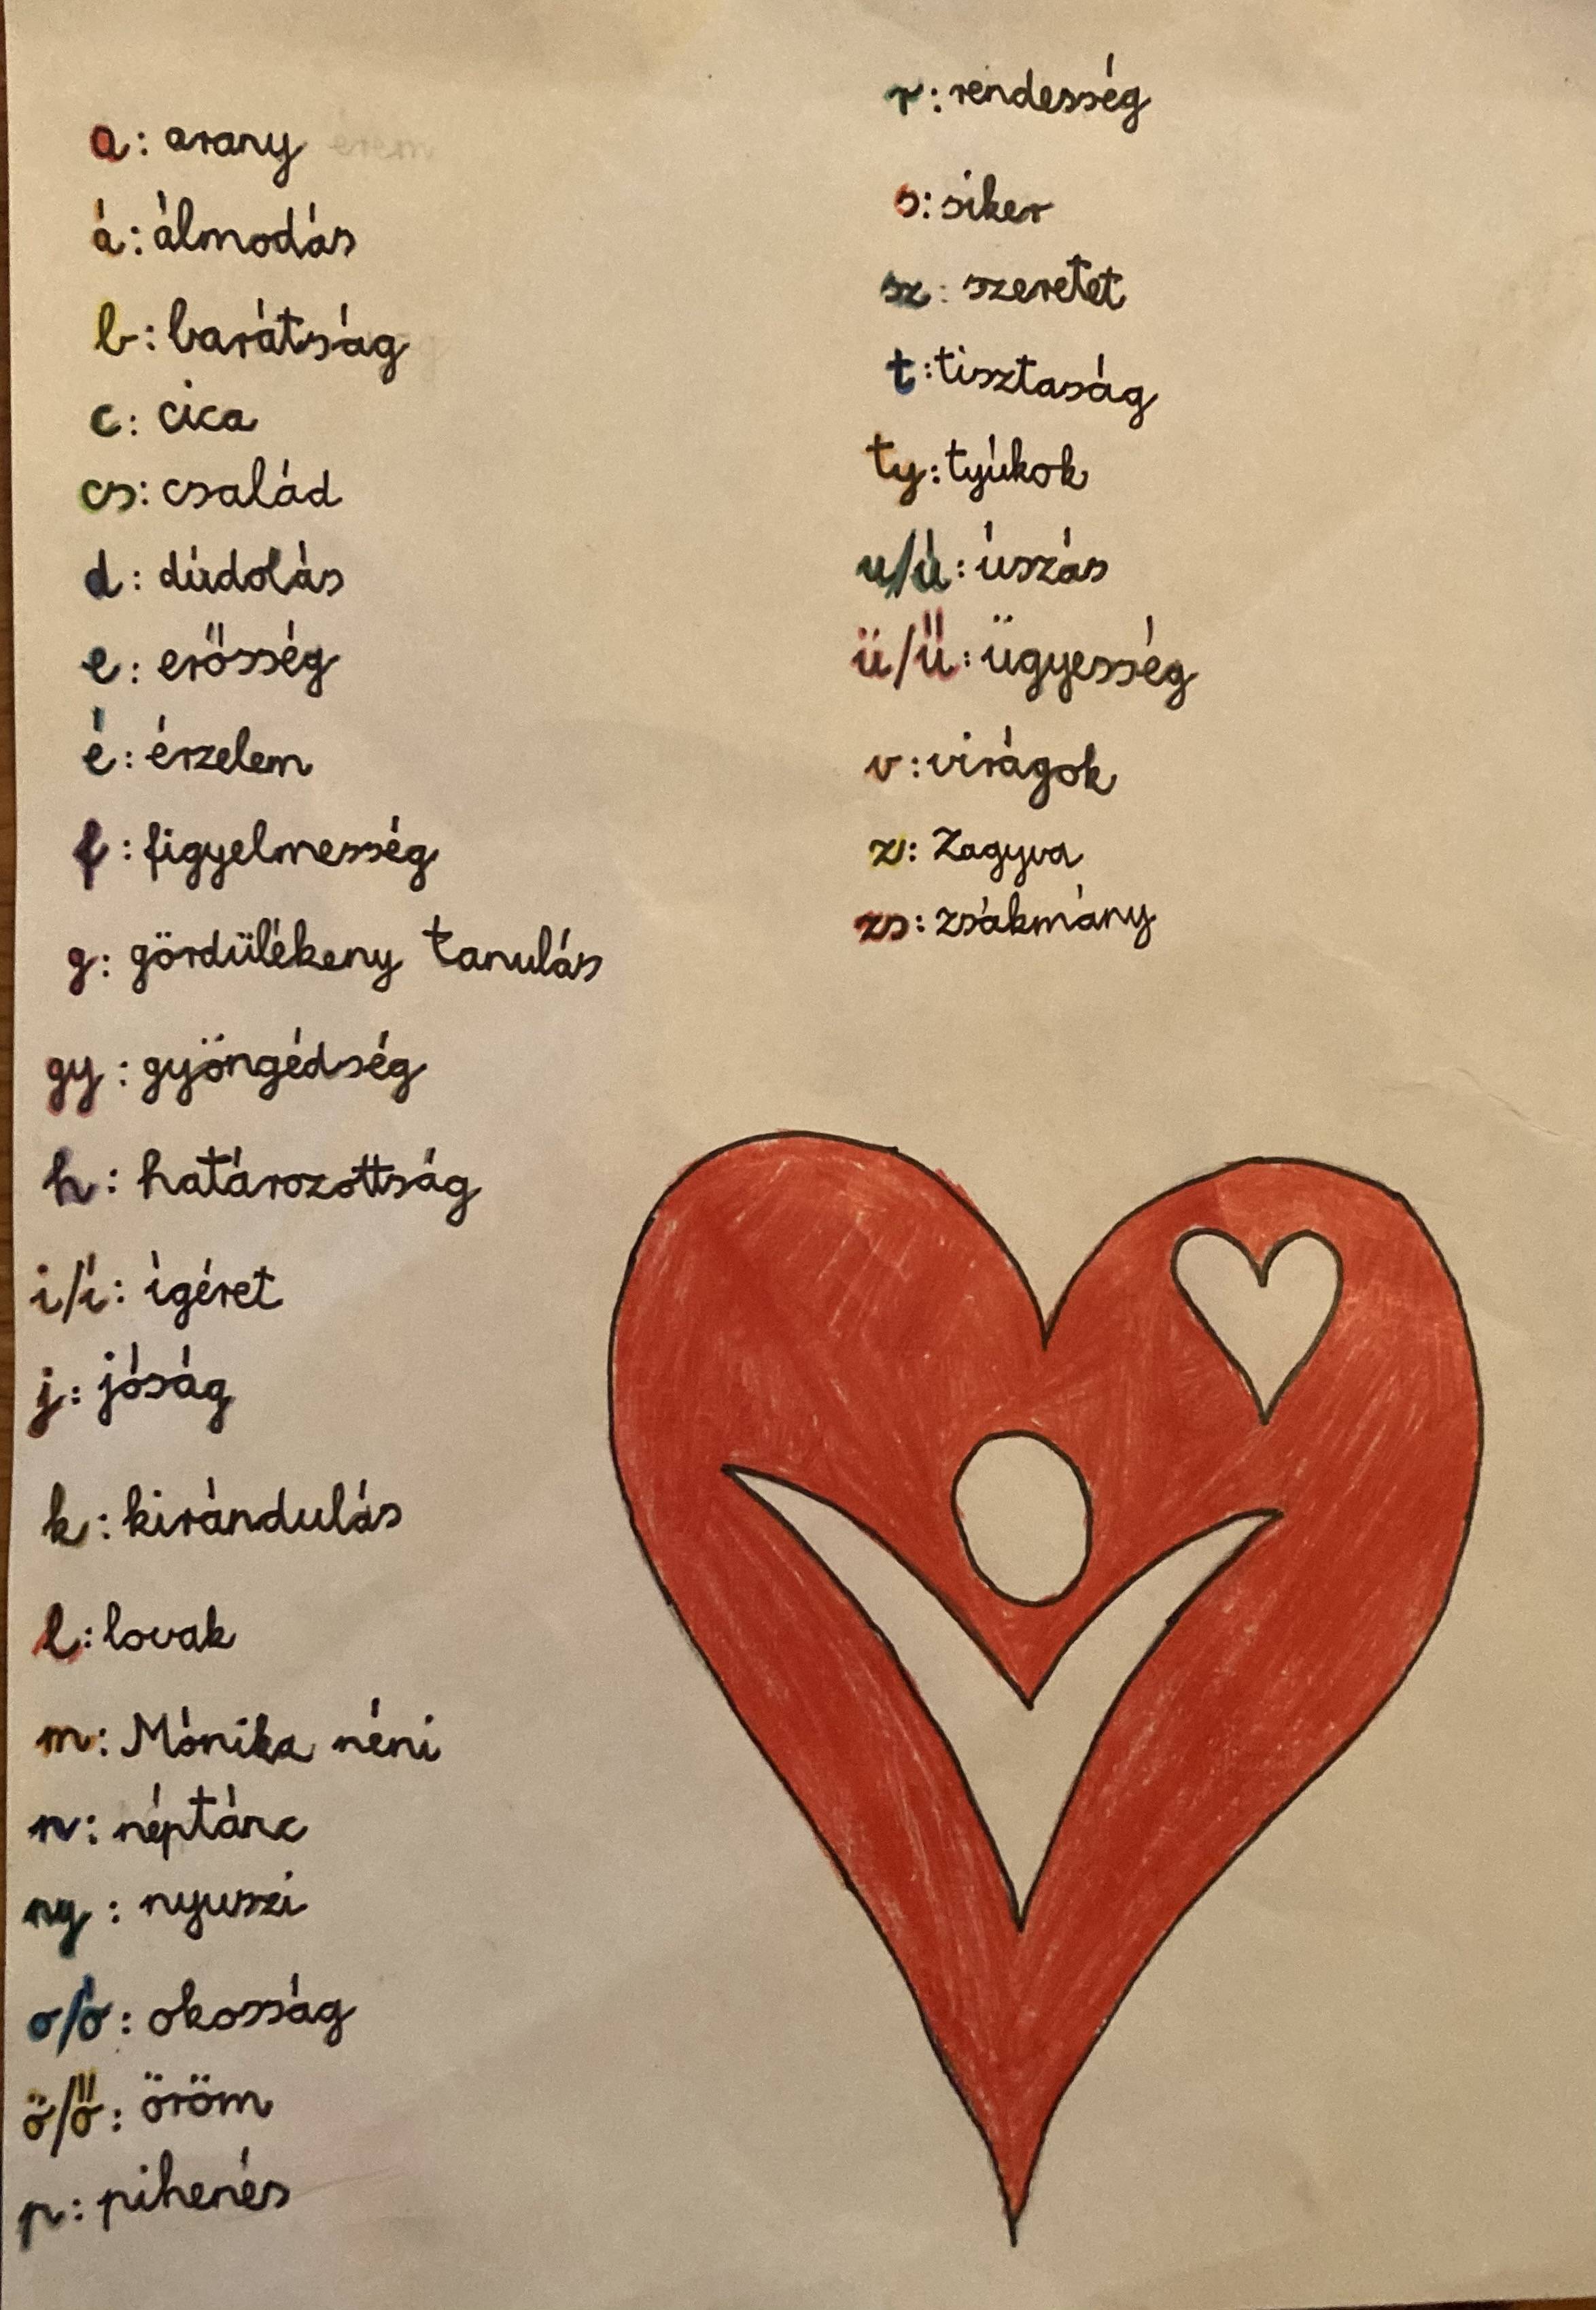 a: arany
á: álmodás
b: barátság
c: cica
cs: család
d: dúdolás
e: erősség
é: érzelem
f: figyelmesség
g: gördülékeny tanulás
gy: gyöngédség
h: határozottság
i/í: igéret
j: jóság
k: kirándulás
l: lovak
m: Mónika néni
n: néptánc
ny: nyuszi
o/ó: okosság
ö/ő: öröm
p: pihenés
r: rendesség
s: siker
sz: szeretet
t: tisztaság
ty: tyúkok
u/ú: úszás
ü/ű: ügyesség
v: virágok
z: Zagyva
zs: zsákmány